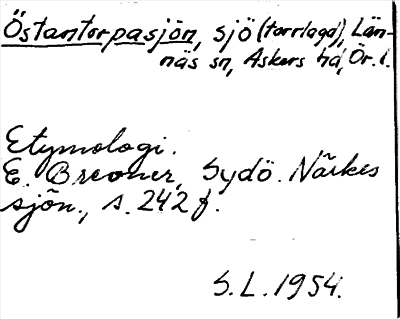 Östantorpasjön, sjö (torrlagd), Län-
näs sn, Askers hd, Ör. l.
Etymologi.
E. Brevner, Sydö. Närkes
sjön., s. 242 f.
S.L. 1954.